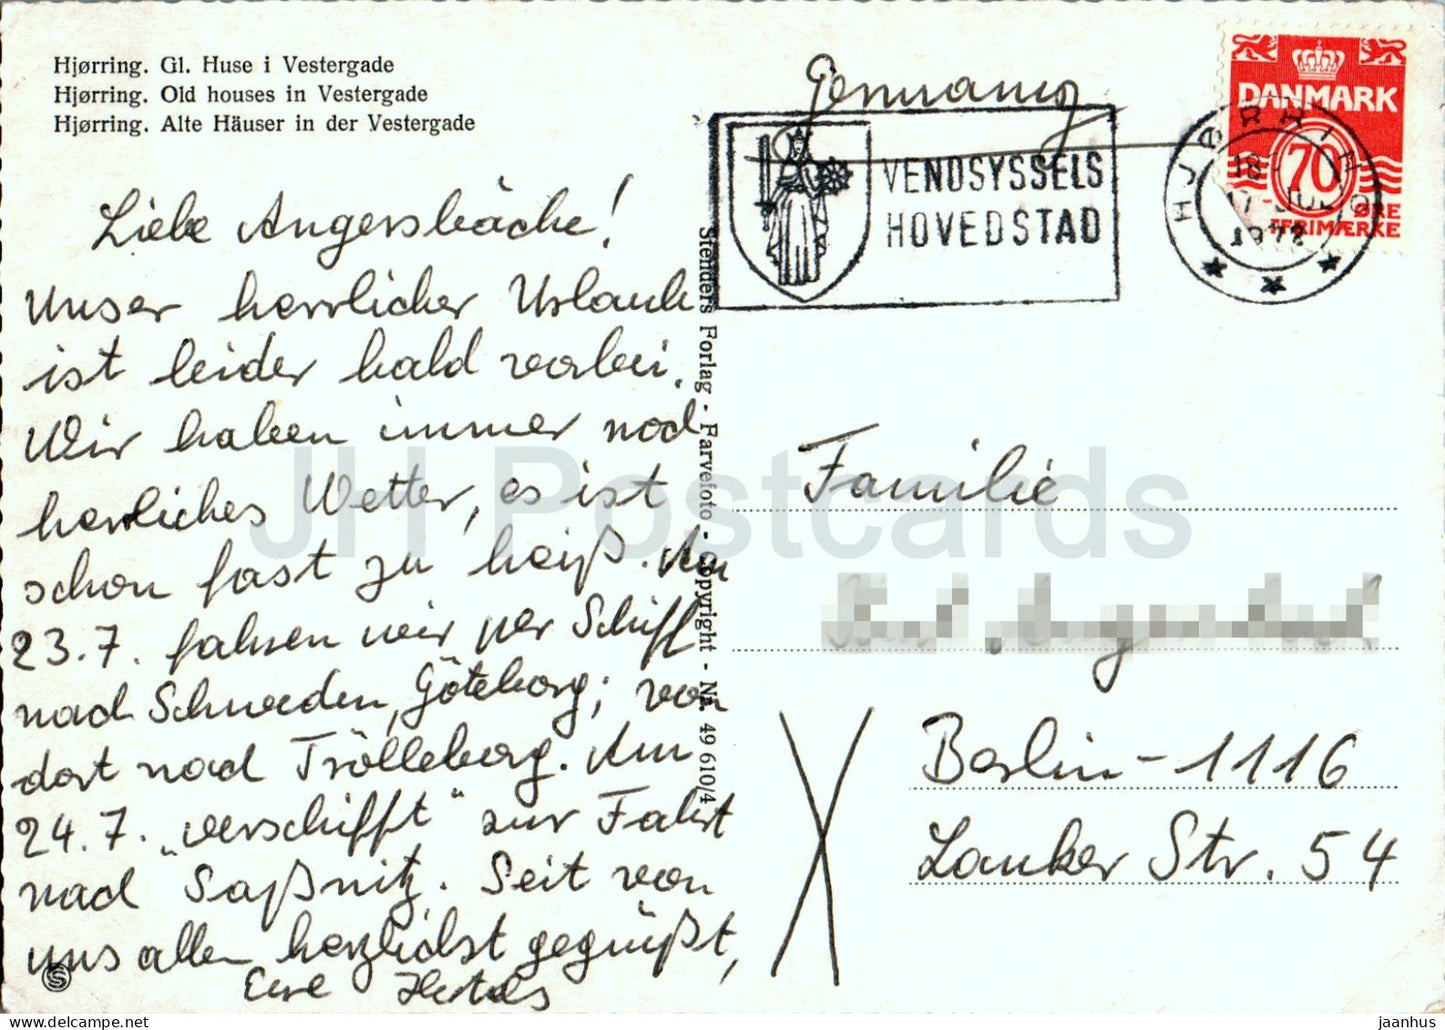 Hjørring. Gl. Huse i Vestergade
Hjørring. Old houses in Vestergade
Hjørring. Alte Häuser in der Vestergade
Liebe Angersbäche!
Unser herrlicher Urlaub
ist leider bald vorbei.
Wir haben immer noch
herrliches Wetter, es ist
schon fast zu heiß. Am
23.7. fahren wir per Schiff
nach Schweden, Göteborg; von
dort nach Trölleborg. Am
24.7. „verschifft“ zur Fahrt
nach Saßnitz. Seit von
uns allen herzlichst gegrüßt,
Eure Hertels
Stenders Forlag - Farvefoto - Copyright - Nr. 49 610/4
Germany
VENDSYSSELS
HOVEDSTAD
HJØRRING
18
17 JUL
1972
DANMARK
70
ØRE
FRIMÆRKE
Familie
Berlin-1116
Lanker Str. 54
JH Postcards
jaanhus.com